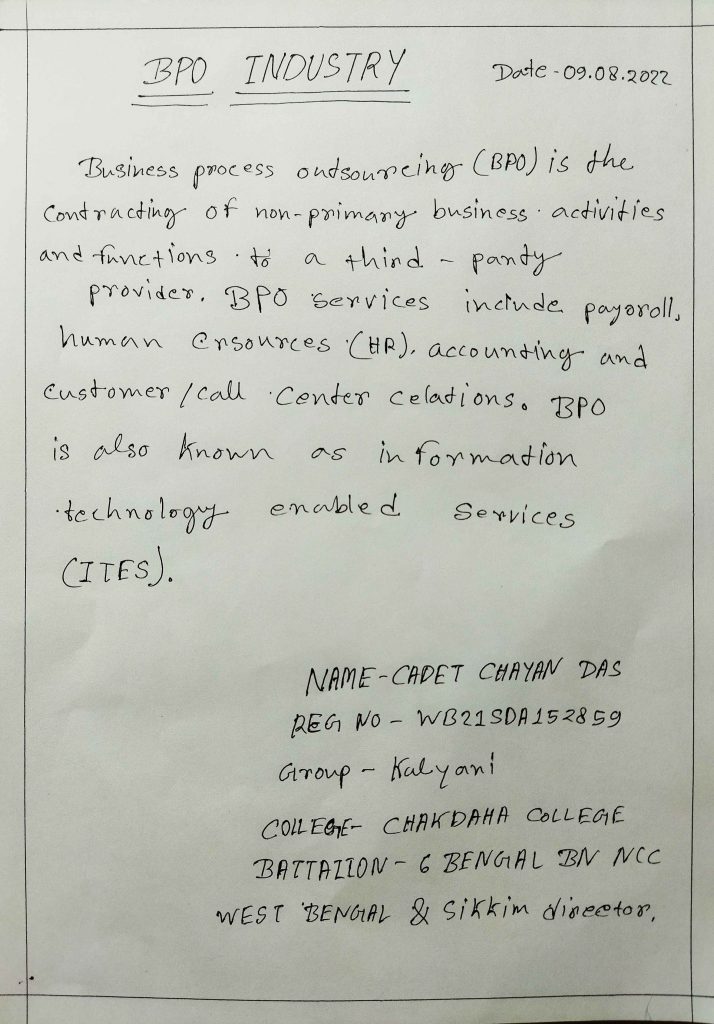 BPO INDUSTRY
Date - 09.08.2022
Business process outsourcing (BPO) is the
Contracting of non-primary business activities
and functions to a third - party
provider. BPO services include payoroll,
human ersources (HR), accounting and
Customer/call Center celations. BPO
is also known as information
technology enabled Services
(ITES).
NAME - CADET CHAYAN DAS
REG NO - WB21SDA152859
Group - Kalyani
COLLEGE - CHAKDAHA COLLEGE
BATTALION - 6 BENGAL BN NCC
WEST BENGAL & Sikkim director.